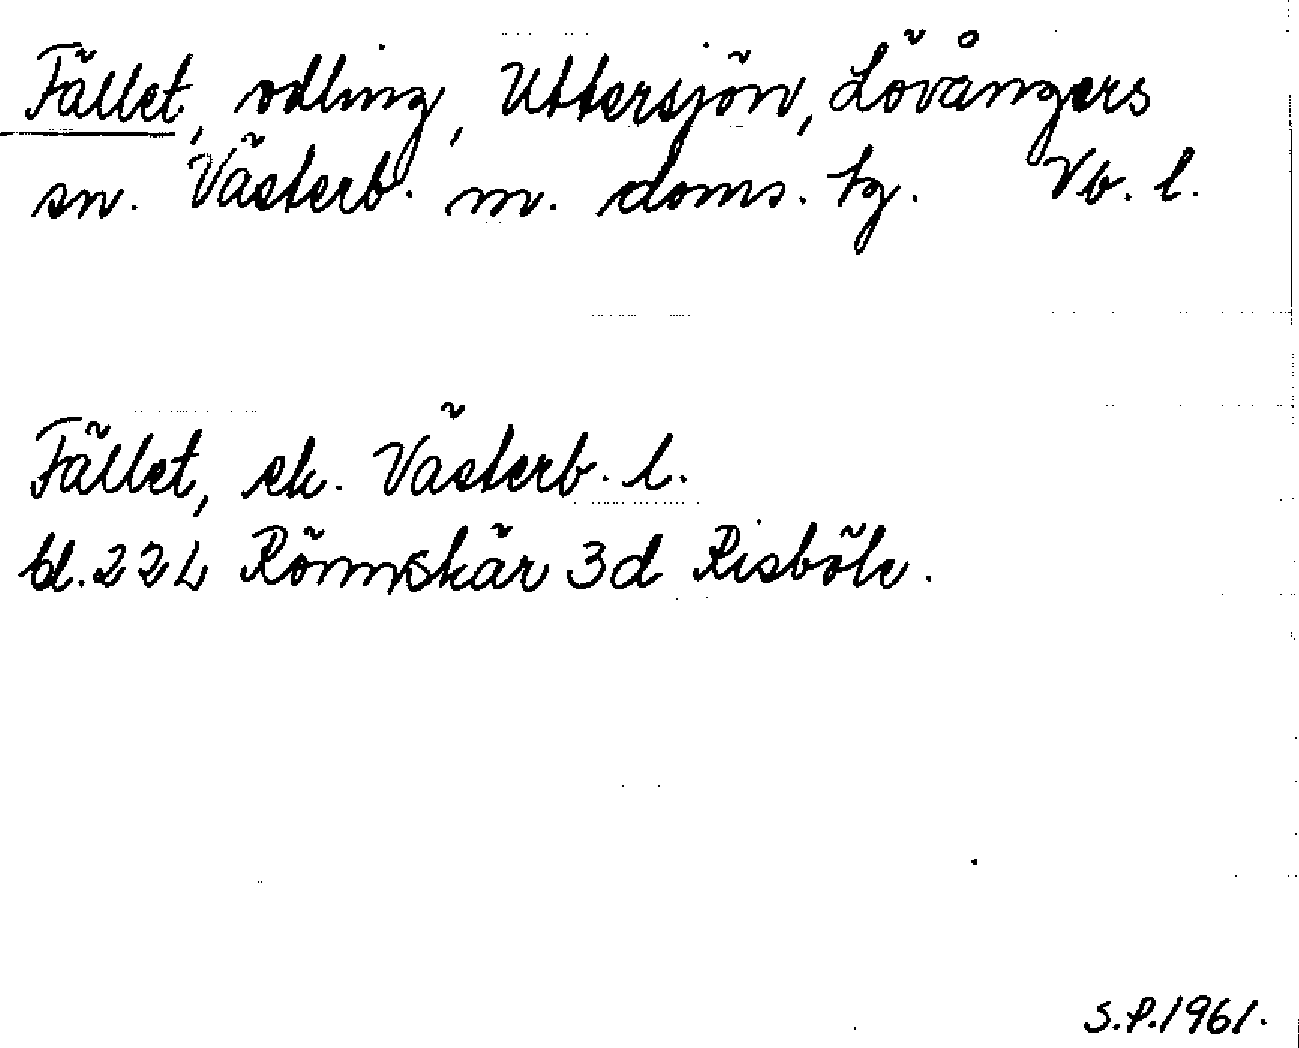 Fället, odling, Uttersjön, Lövångers
sn. Västerb. m. doms. tg. Vb. l.
Fället, ek. Västerb. l.
bl. 22 L Rönnskär 3d Risböle.
S.P. 1961.